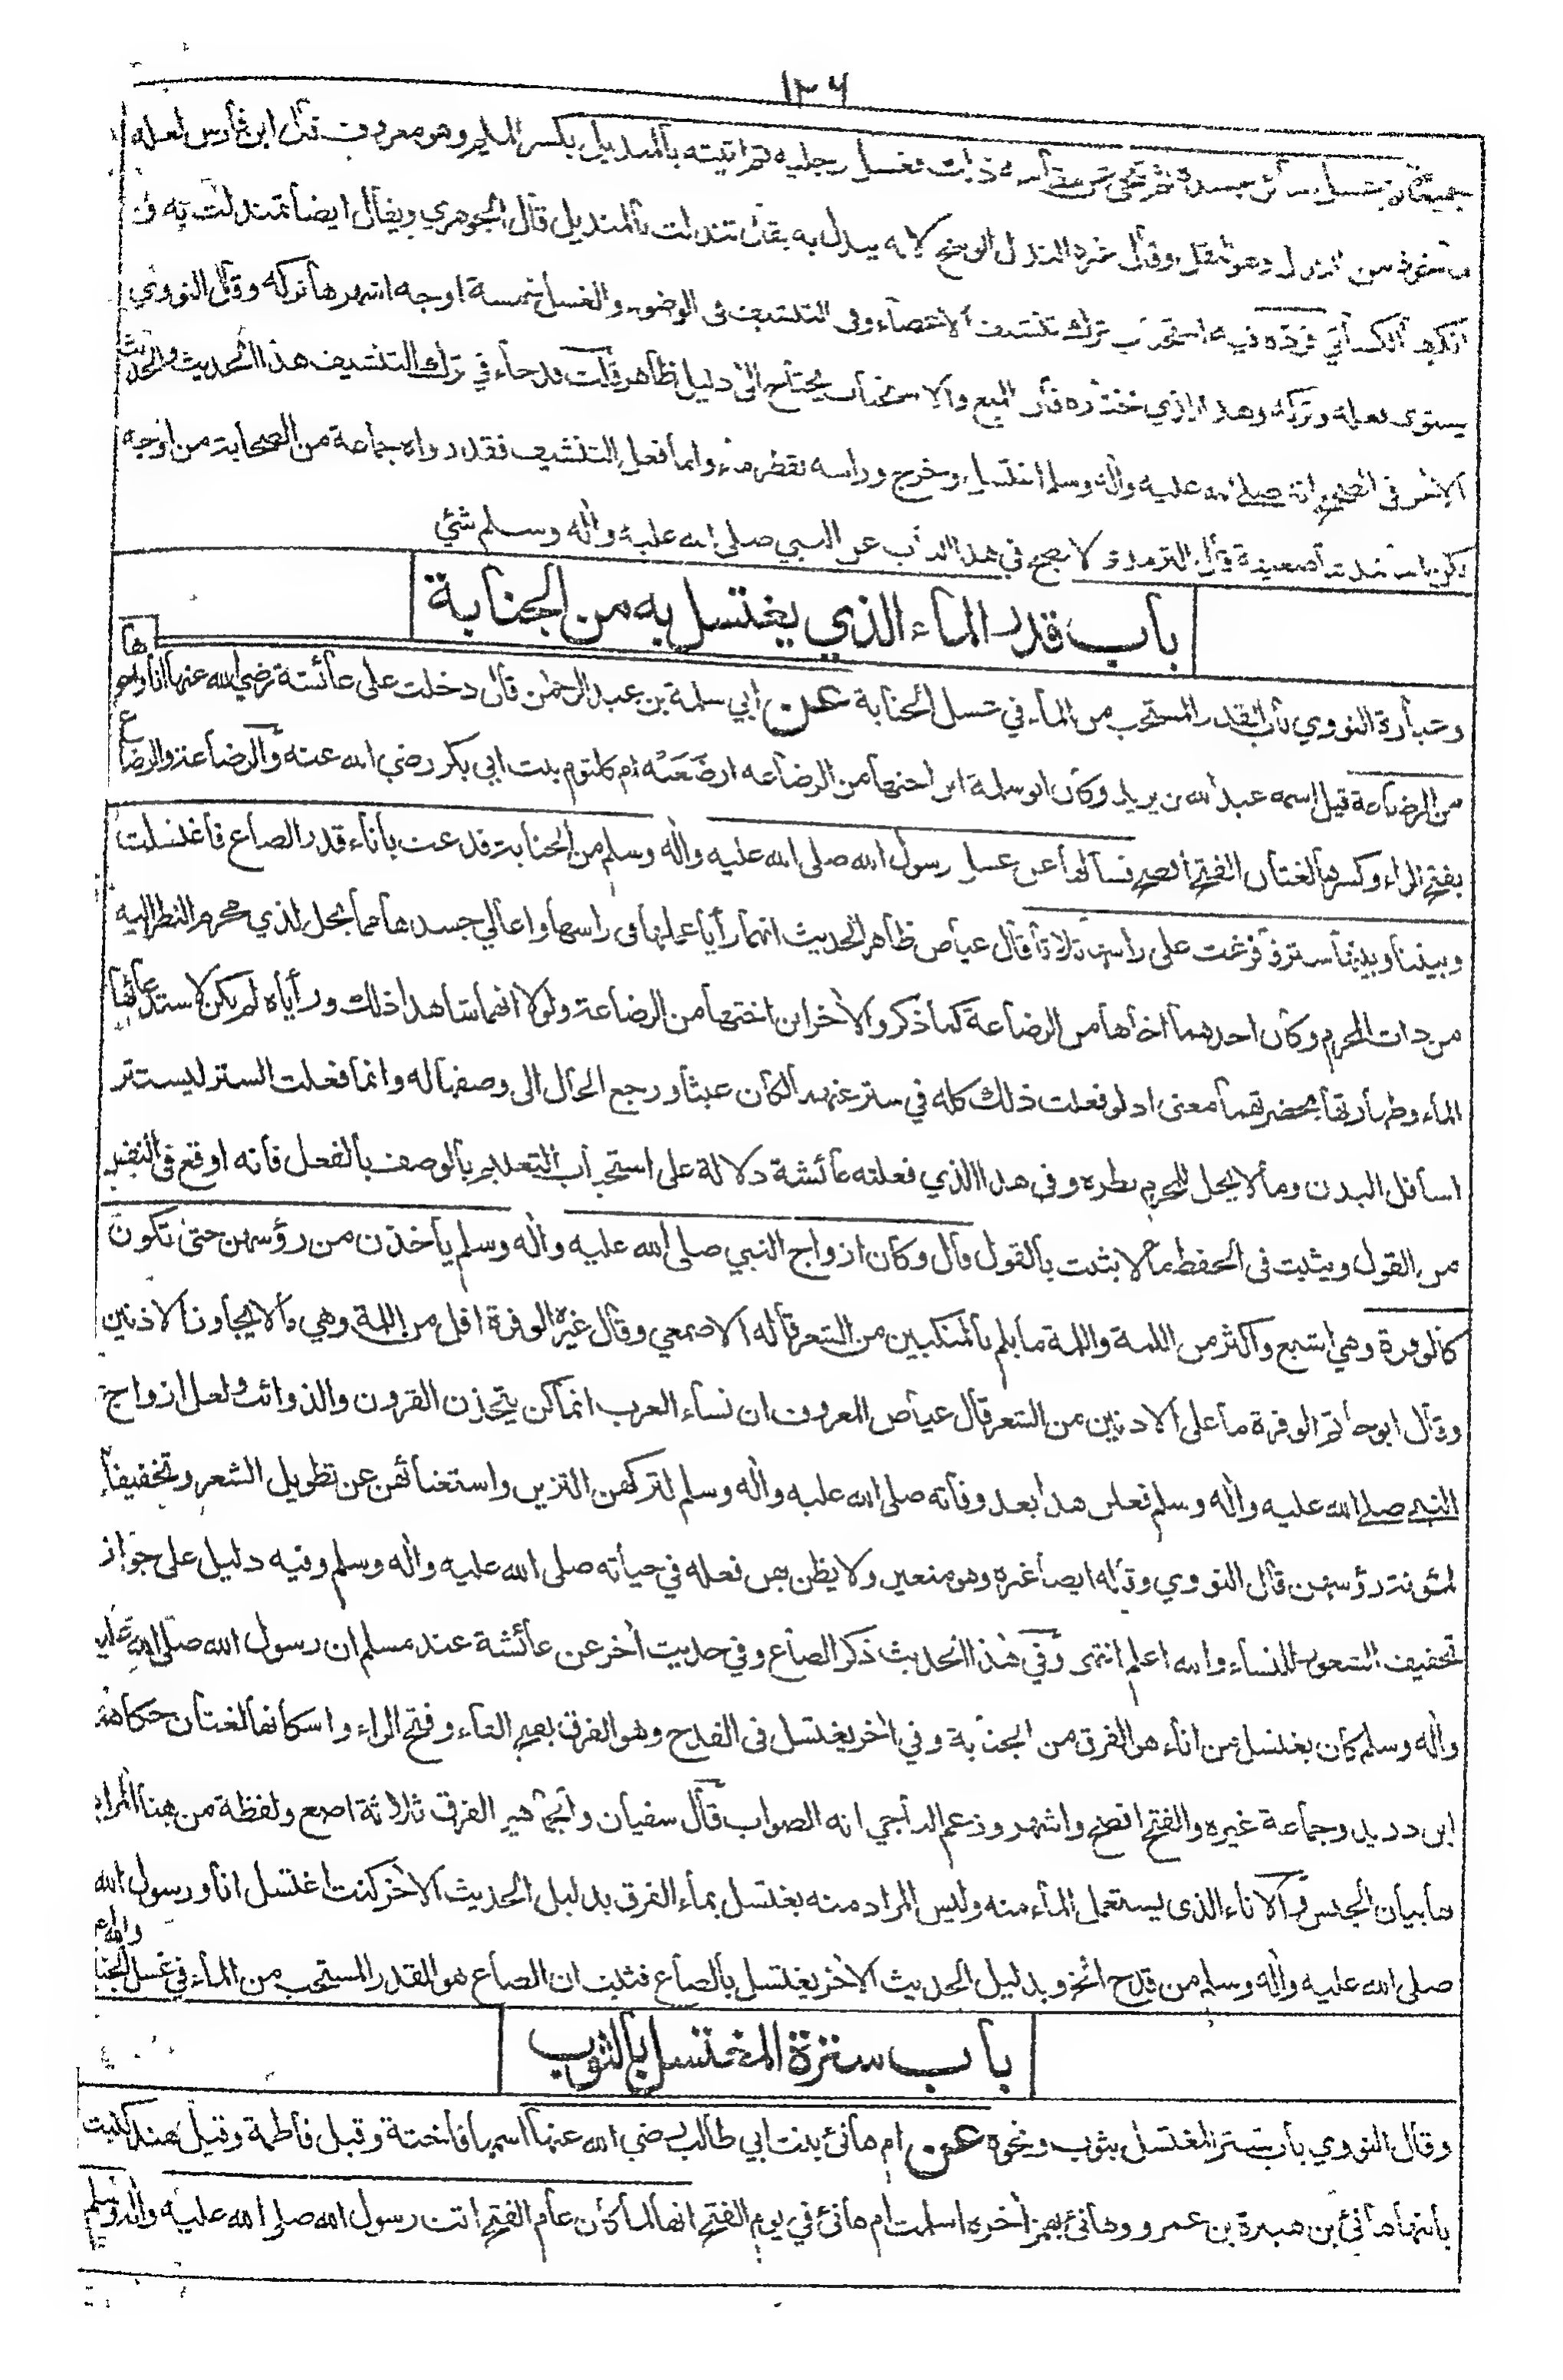 ١٣٦
جميعاً ثم يغسل سائر جسده ثم تنحى عن مقامه ذلك فغسل رجليه ثم اتيته بالمنديل بكسر الميم وهو معروف قال ابن فارس لعله
ماخوذ من الندل وهو النقل وقال غيره الندل الوسخ لانه يندل به يقال تندلت بالمنديل قال الجوهري ويقال ايضا تمندلت به و
انكرها الكسائي فرده فيه استحباب ترك تنشيف الاعضاء وفي التنشيف في الوضوء والغسل خمسة اوجه اشهرها تركه وقال النووي
يستوى فعله وتركه وهذا الذي نختاره فان المنع والاستحباب يحتاج الى دليل ظاهر قلت قد جاء في ترك التنشيف هذا الحديث والحديث
الاخر في الصحيح انه صلى الله عليه واله وسلم اغتسل وخرج وراسه يقطر ماء واما فعل التنشيف فقد رواه جماعة من الصحابة من اوجه
لكن اسانيدها ضعيفة قال الترمذي لا يصح في هذا الباب عن النبي صلى الله عليه واله وسلم شئ
باب قدر الماء الذي يغتسل به من الجنابة
وعبارة النووي باب القدر المستحب من الماء في غسل الجنابة عن ابي سلمة بن عبد الرحمن قال دخلت على عائشة رضي الله عنها انا واخوها
من الرضاعة قيل اسمه عبد الله بن يزيد وكان ابو سلمة ابن اختها من الرضاعه ارضَعَتْه ام كلثوم بنت ابي بكر رضي الله عنه والرضاعة والرضاع
بفتح الراء وكسرها لغتان الفتح افصح فسألها عن غسل رسول الله صلى الله عليه واله وسلم من الجنابة فدعت باناء قدر الصاع فاغتسلت
وبيننا وبينها ستر وافرغت على راسها ثلاثا قال عياض ظاهر الحديث انهما رأيا عملها في راسها واعالي جسدها مما يحل لذي محرم النظر اليه
من ذات المحرم وكان احدهما اخاها من الرضاعة كما ذكر والاخر ابن اختها من الرضاعة ولولا انهما شاهدا ذلك ورأياه لم يكن لاستدعائها
الماء وطهارتها بحضرتهما معنى اذ لو فعلت ذلك كله في ستر عنهما لكان عبثا ورجع الحال الى وصفها له وانما فعلت الستر ليستتر
اسافل البدن وما لا يحل للمحرم نظره وفي هذا الذي فعلته عائشة دلالة على استحباب التعليم بالوصف بالفعل فانه اوقع في النفس
من القول ويثبت في الحفظ ما لا يثبت بالقول قال وكان ازواج النبي صلى الله عليه واله وسلم يأخذن من رؤسهن حتى تكون
كالوفرة وهي اشبع واكثر من اللمة واللمة ما يلم بالمنكبين من الشعر قاله الاصمعي وقال غيره الوفرة اقل من اللمة وهي ما لا يجاوز الاذنين
وقال ابو حاتم الوفرة ما على الاذنين من الشعر قال عياض المعروف ان نساء العرب انما كن يتخذن القرون والذوائب ولعل ازواج
النبي صلى الله عليه واله وسلم فعلن هذا بعد وفاته صلى الله عليه واله وسلم لتركهن التزين واستغنائهن عن تطويل الشعر وتخفيفا
لمئونة رؤسهن قال النووي وقاله ايضا غيره وهو متعين ولا يظن بهن فعله في حياته صلى الله عليه واله وسلم وفيه دليل على جواز
تخفيف الشعور للنساء والله اعلم انتهى وفي هذا الحديث ذكر الصاع وفي حديث اخر عن عائشة عند مسلم ان رسول الله صلى الله عليه
واله وسلم كان يغتسل من اناء هو الفرق من الجنابة وفي اخر يغتسل في القدح وهو الفرق بفتح الفاء وفتح الراء واسكانها لغتان حكاهما
ابن دريد وجماعة غيره والفتح افصح واشهر وزعم الباجي انه الصواب قال سفيان والجماهير الفرق ثلاثة اصع ولفظة من هنا المراد
بها بيان الجنس والاناء الذى يستعمل الماء منه وليس المراد منه يغتسل بماء الفرق بدليل الحديث الاخر كنت اغتسل انا ورسول الله
صلى الله عليه واله وسلم من قدح الخ وبدليل الحديث الاخر يغتسل بالصاع فثبت ان الصاع هو القدر المستحب من الماء في غسل الجنابة والله اعلم
باب سترة المغتسل بالثوب
وقال النووي باب تستر المغتسل بثوب ونحوه عن ام هانئ بنت ابي طالب رضي الله عنها اسمها فاختة وقيل فاطمة وقيل هند كنيت
بابنها هانئ بن هبيرة بن عمرو وهانئ بهمز اخره اسلمت ام هانئ في يوم الفتح انها لما كان عام الفتح اتت رسول الله صلى الله عليه واله وسلم